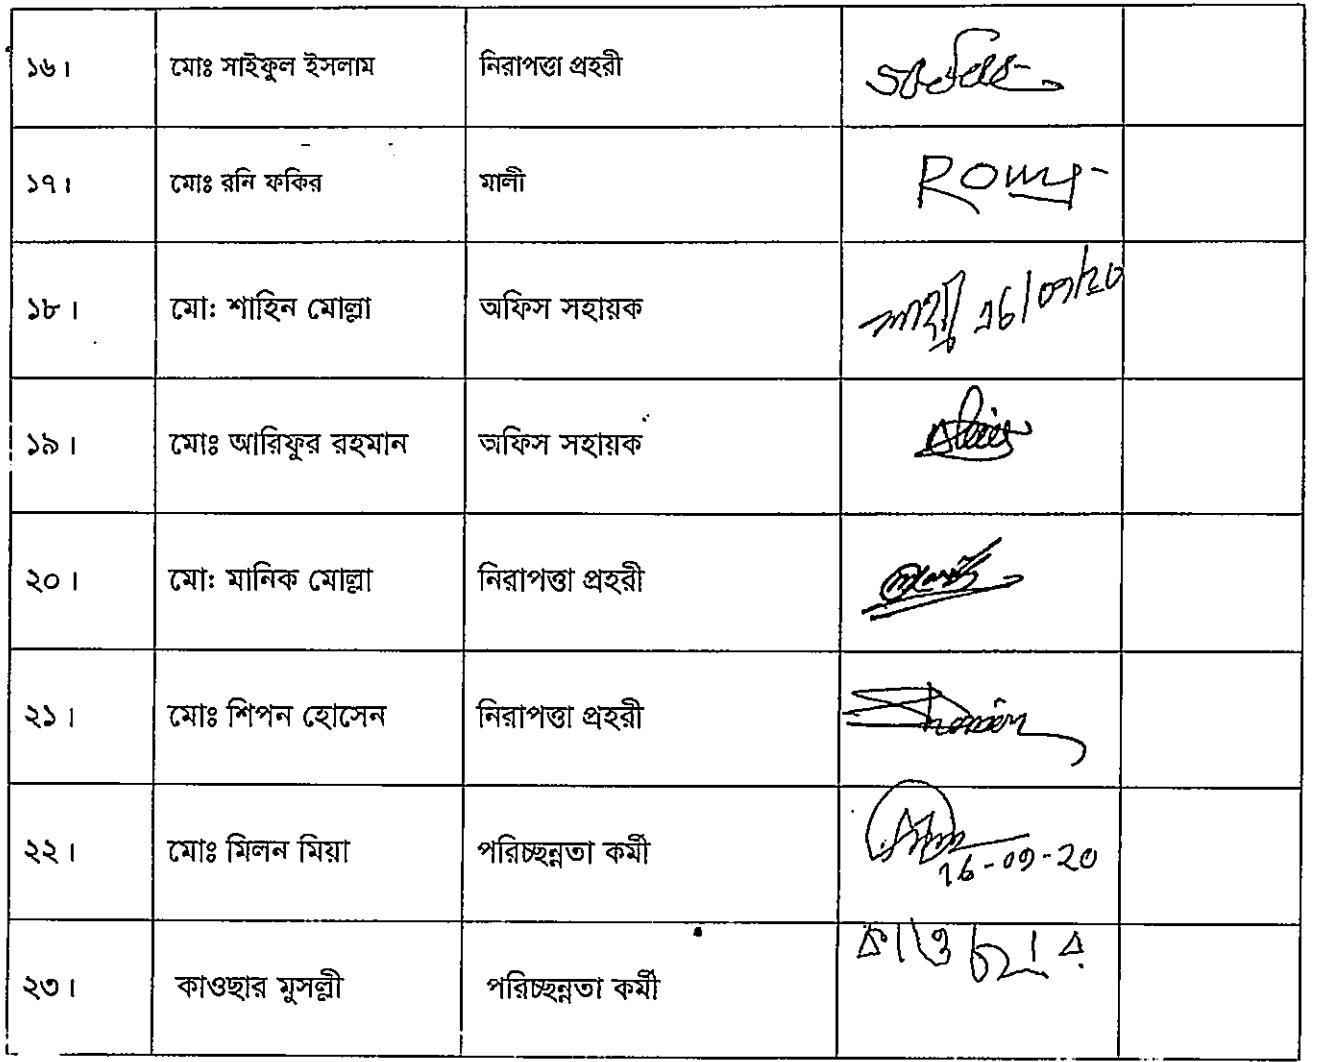 ১৬। মোঃ সাইফুল ইসলাম নিরাপত্তা প্রহরী
১৭। মোঃ রনি ফকির মালী
১৮। মো: শাহিন মোল্লা অফিস সহায়ক
১৯। মোঃ আরিফুর রহমান অফিস সহায়ক
২০। মো: মানিক মোল্লা নিরাপত্তা প্রহরী
২১। মোঃ শিপন হোসেন নিরাপত্তা প্রহরী
২২। মোঃ মিলন মিয়া পরিচ্ছন্নতা কর্মী
16-09-20
কাওছার
২৩। কাওছার মুসল্লী পরিচ্ছন্নতা কর্মী